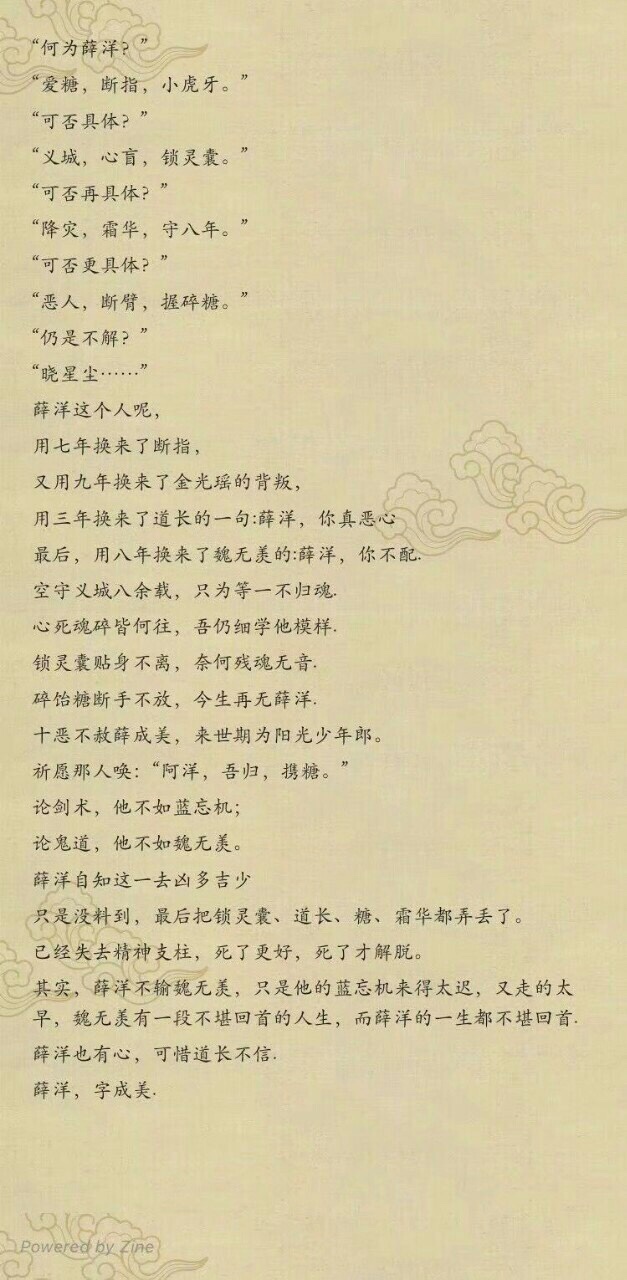 “何为薛洋？”
“爱糖，断指，小虎牙。”
“可否具体？”
“义城，心盲，锁灵囊。”
“可否再具体？”
“降灾，霜华，守八年。”
“可否更具体？”
“恶人，断臂，握碎糖。”
“仍是不解？”
“晓星尘……”
薛洋这个人呢，
用七年换来了断指，
又用九年换来了金光瑶的背叛，
用三年换来了道长的一句:薛洋，你真恶心
最后，用八年换来了魏无羡的:薛洋，你不配.
空守义城八余载，只为等一不归魂.
心死魂碎皆何往，吾仍细学他模样.
锁灵囊贴身不离，奈何残魂无音.
碎饴糖断手不放，今生再无薛洋.
十恶不赦薛成美，来世期为阳光少年郎。
祈愿那人唤：“阿洋，吾归，携糖。”
论剑术，他不如蓝忘机；
论鬼道，他不如魏无羡。
薛洋自知这一去凶多吉少
只是没料到，最后把锁灵囊、道长、糖、霜华都弄丢了。
已经失去精神支柱，死了更好，死了才解脱。
其实，薛洋不输魏无羡，只是他的蓝忘机来得太迟，又走的太
早，魏无羡有一段不堪回首的人生，而薛洋的一生都不堪回首.
薛洋也有心，可惜道长不信.
薛洋，字成美.
Powered by Zine